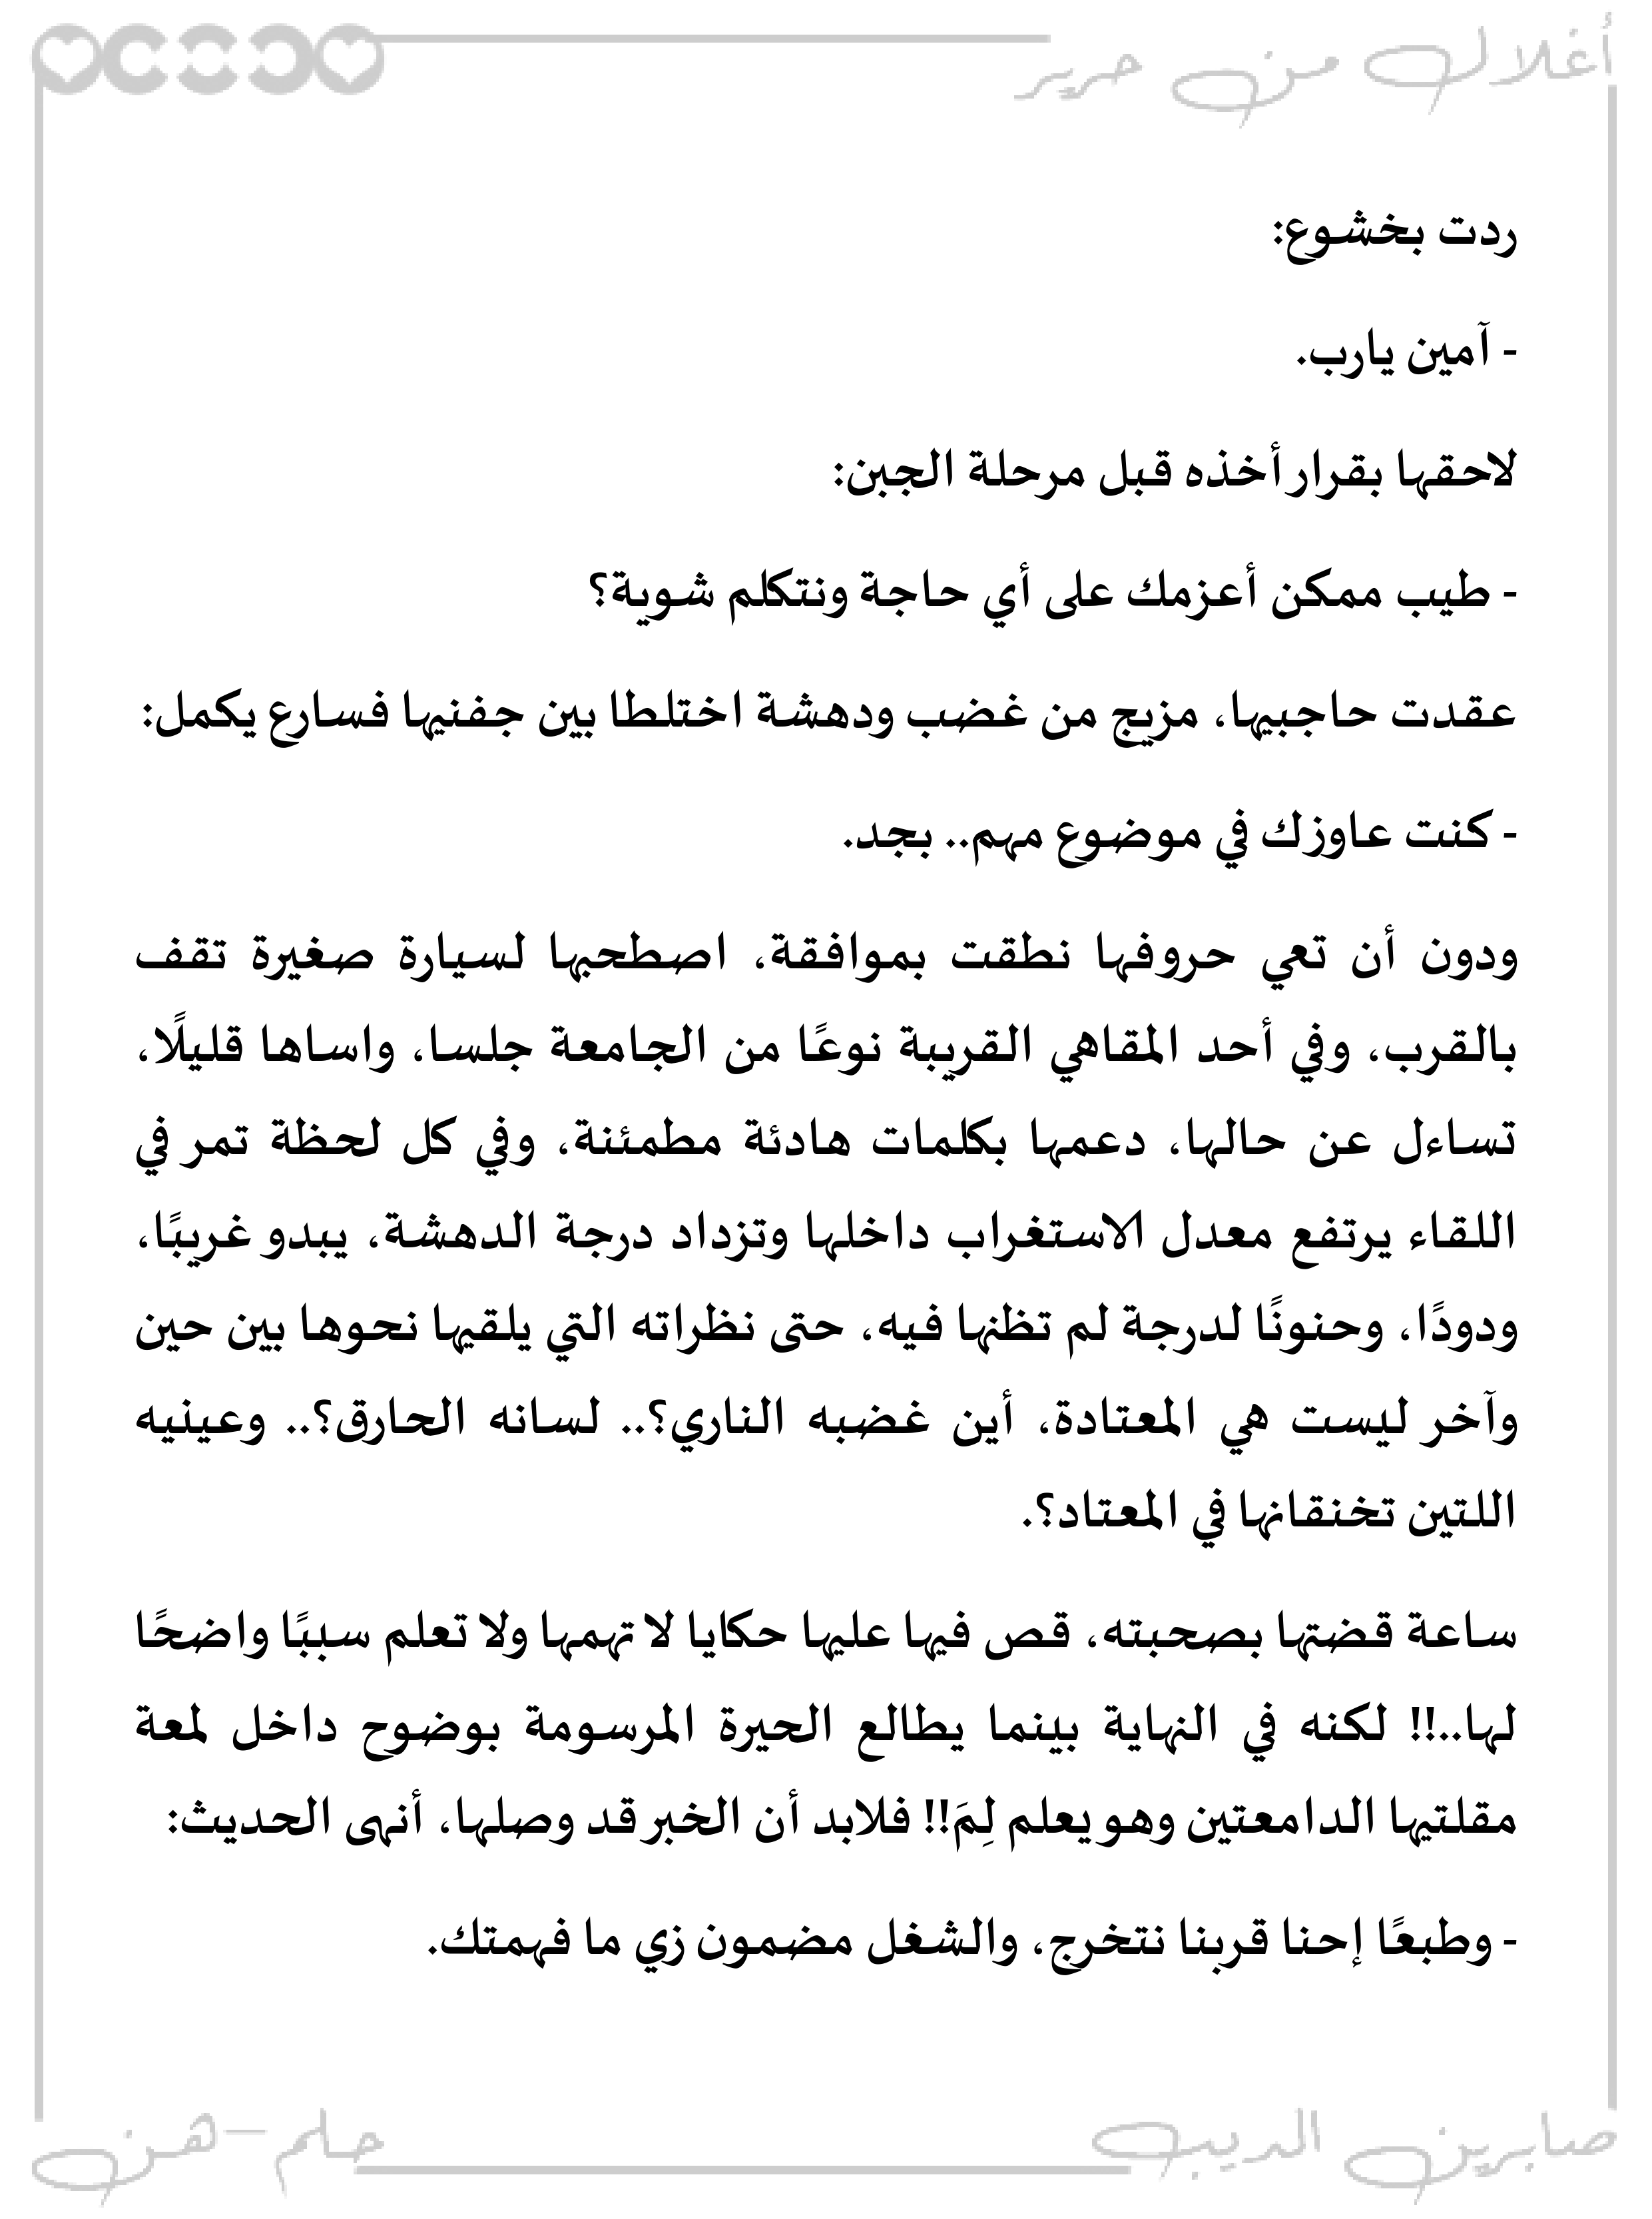 أغلال من حرير
ردت بخشوع:
- آمين يارب.
لاحقها بقرار أخذه قبل مرحلة الجبن:
- طيب ممكن أعزمك على أي حاجة ونتكلم شوية؟
عقدت حاجبيها، مزيج من غضب ودهشة اختلطا بين جفنيها فسارع يكمل:
- كنت عاوزك في موضوع مهم.. بجد.
ودون أن تعي حروفها نطقت بموافقة، اصطحبها لسيارة صغيرة تقف
بالقرب، وفي أحد المقاهي القريبة نوعًا من الجامعة جلسا، واساها قليلًا،
تساءل عن حالها، دعمها بكلمات هادئة مطمئنة، وفي كل لحظة تمر في
اللقاء يرتفع معدل الاستغراب داخلها وتزداد درجة الدهشة، يبدو غريبًا،
ودودًا، وحنونًا لدرجة لم تظنها فيه، حتى نظراته التي يلقيها نحوها بين حين
وآخر ليست هي المعتادة، أين غضبه الناري؟.. لسانه الحارق؟.. وعينيه
اللتين تخنقانها في المعتاد؟.
ساعة قضتها بصحبته، قص فيها عليها حكايا لا تهمها ولا تعلم سببًا واضحًا
لها..!! لكنه في النهاية بينما يطالع الحيرة المرسومة بوضوح داخل لمعة
مقلتيها الدامعتين وهو يعلم لِمَ!! فلابد أن الخبر قد وصلها، أنهى الحديث:
- وطبعًا إحنا قربنا نتخرج، والشغل مضمون زي ما فهمتك.
صابرين الديب
حلم-هن